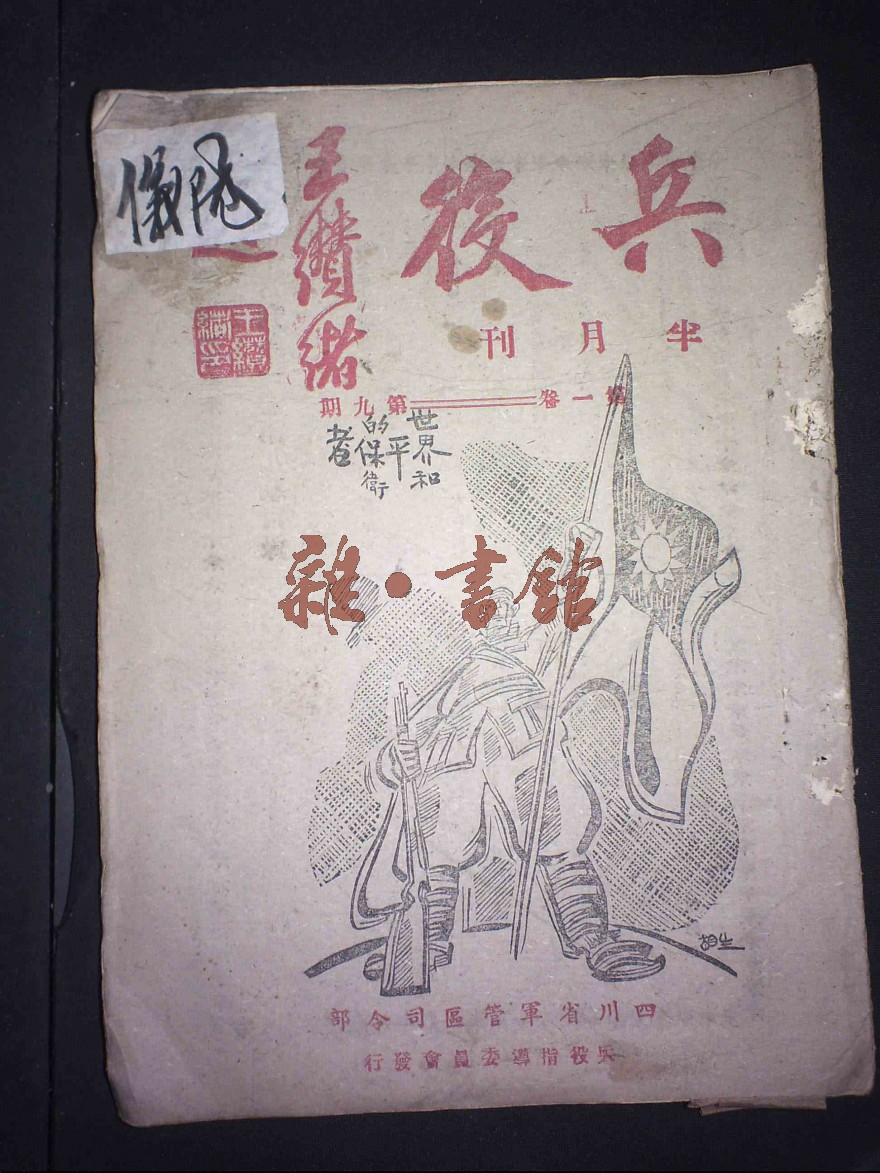 兵役
半月刊
第一卷══════第九期
王纘緒
題
世界和
平
的保衛
者
儀隴
雜·書館
四川省軍管區司令部
兵役指導委員會發行